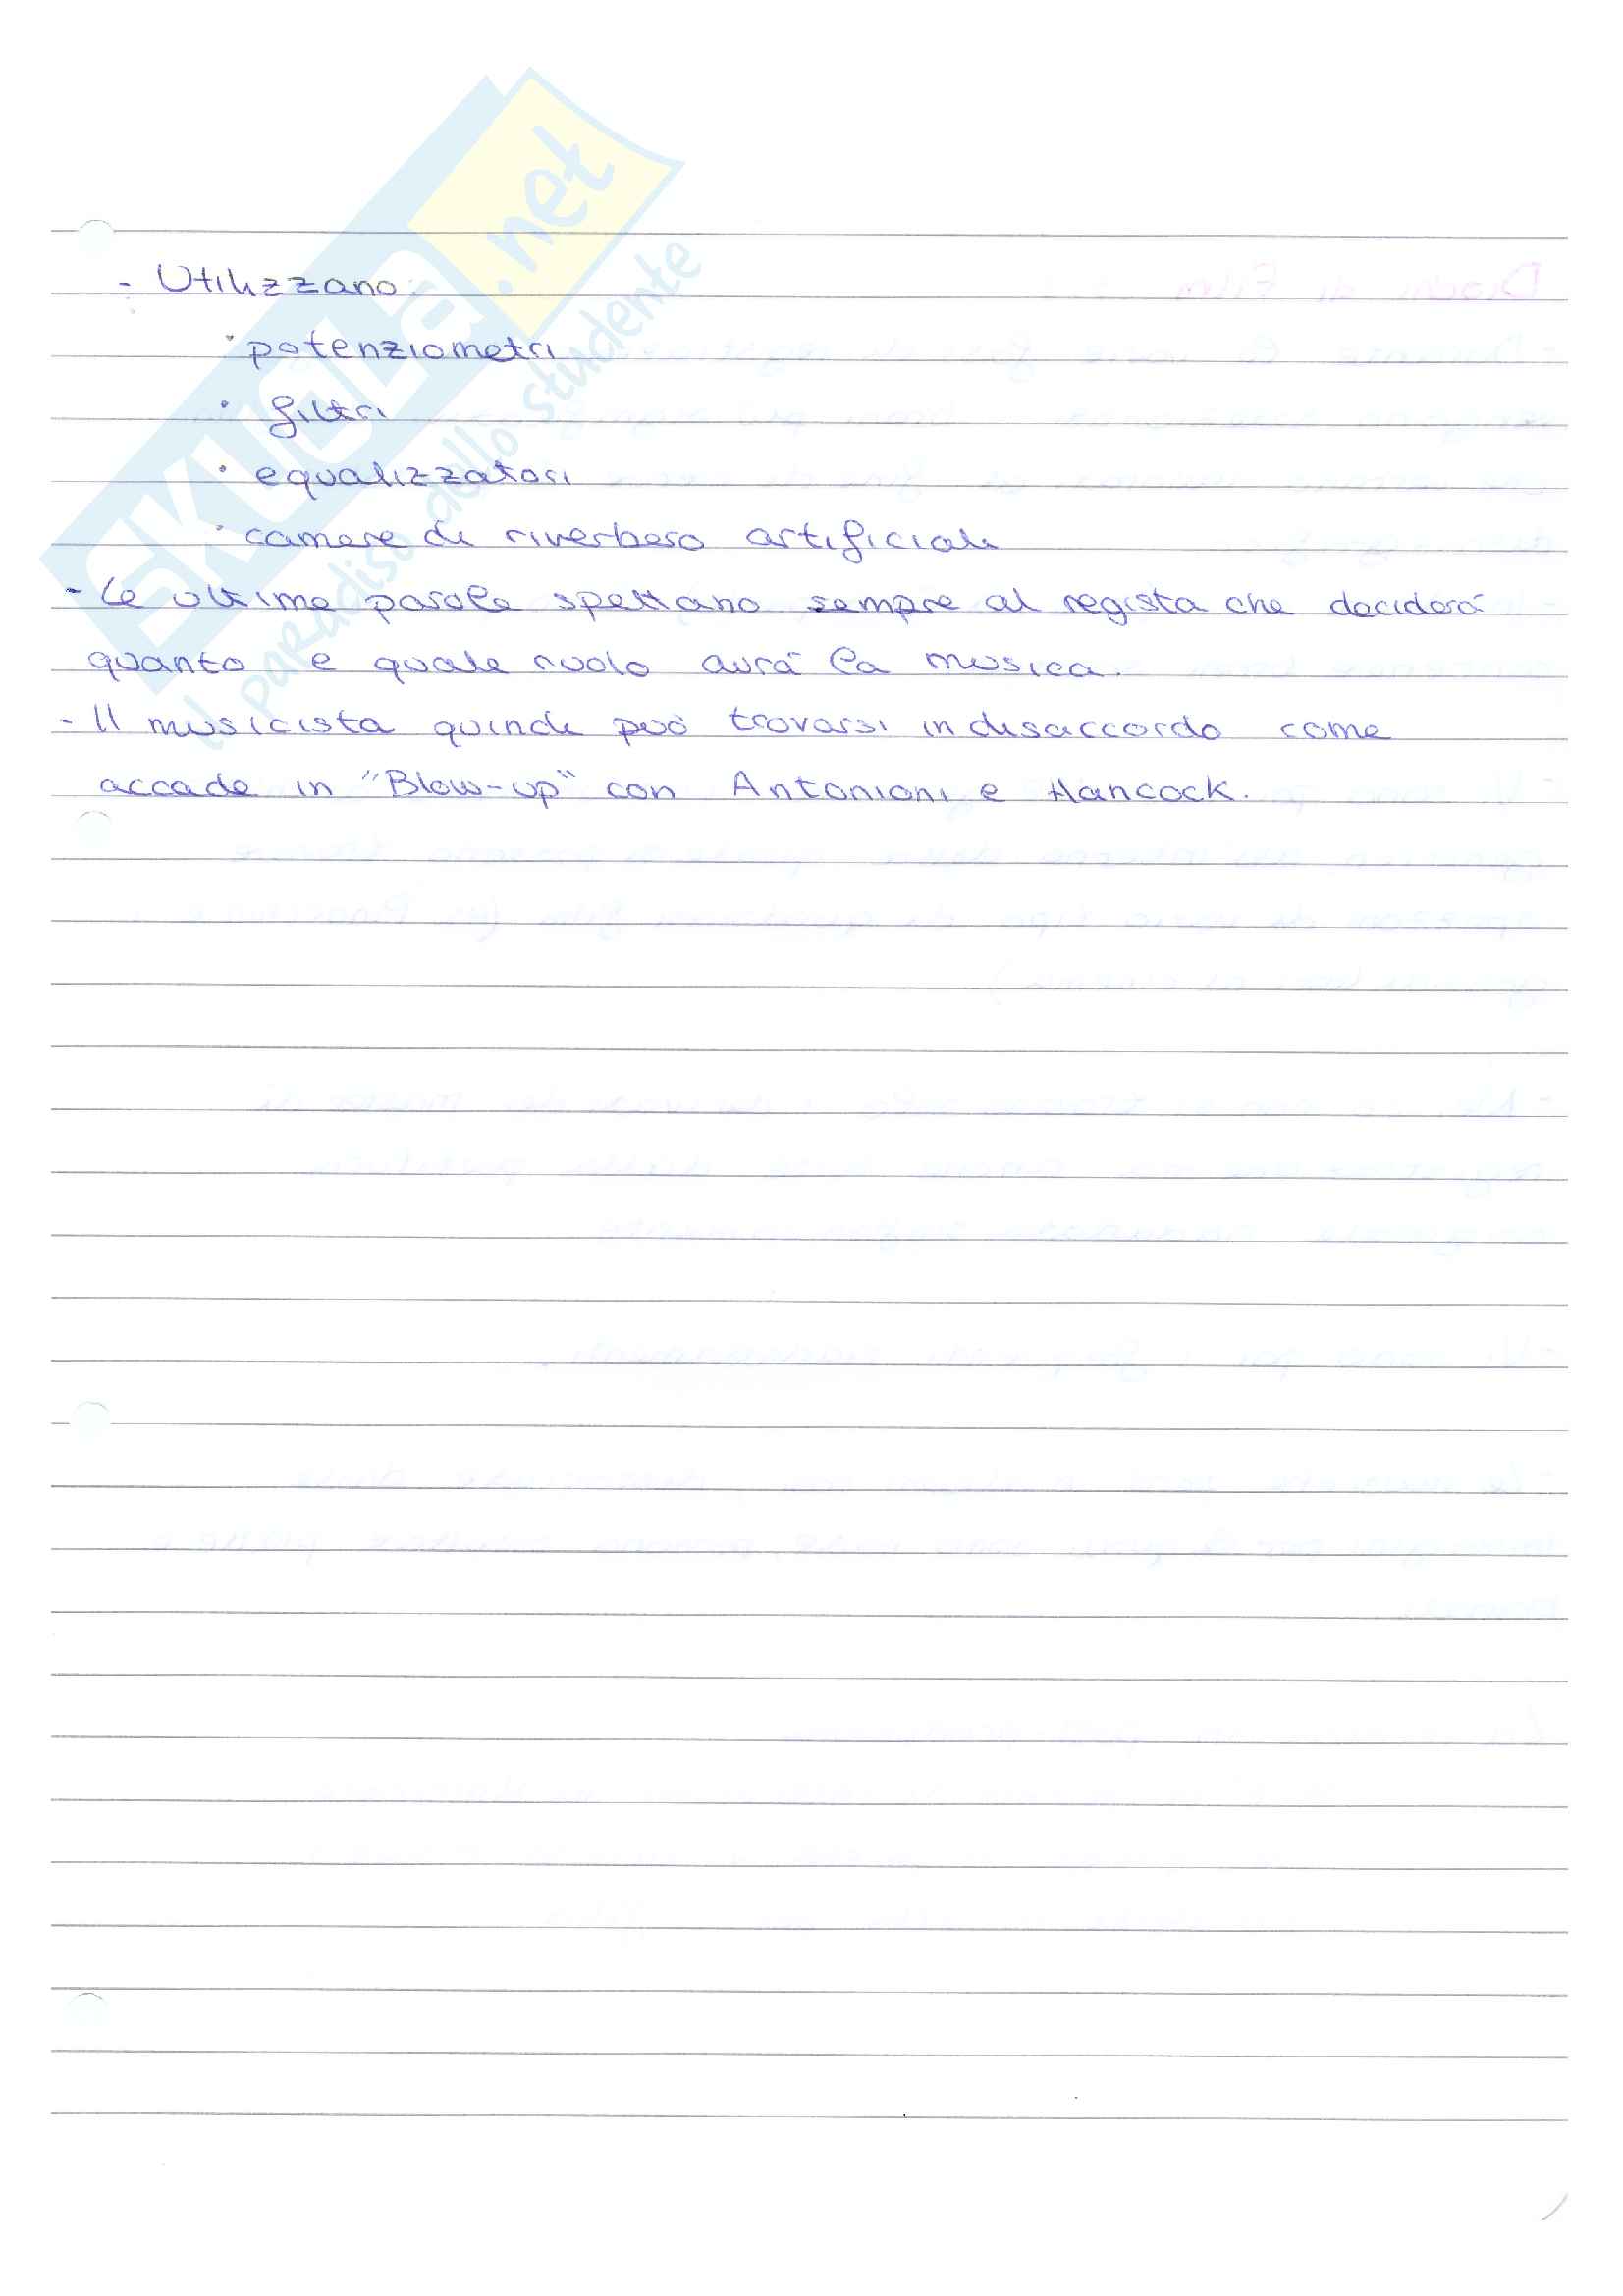 SKUOLA.net
il paradiso dello studente
- Utilizzano:
· potenziometri
· filtri
· equalizzatori
· camere di riverbero artificiali
- Le ultime parole spettano sempre al regista che deciderà
quanto e quale ruolo avrà la musica.
- Il musicista quindi può trovarsi in disaccordo come
accade in "Blow-up" con Antonioni e Hancock.